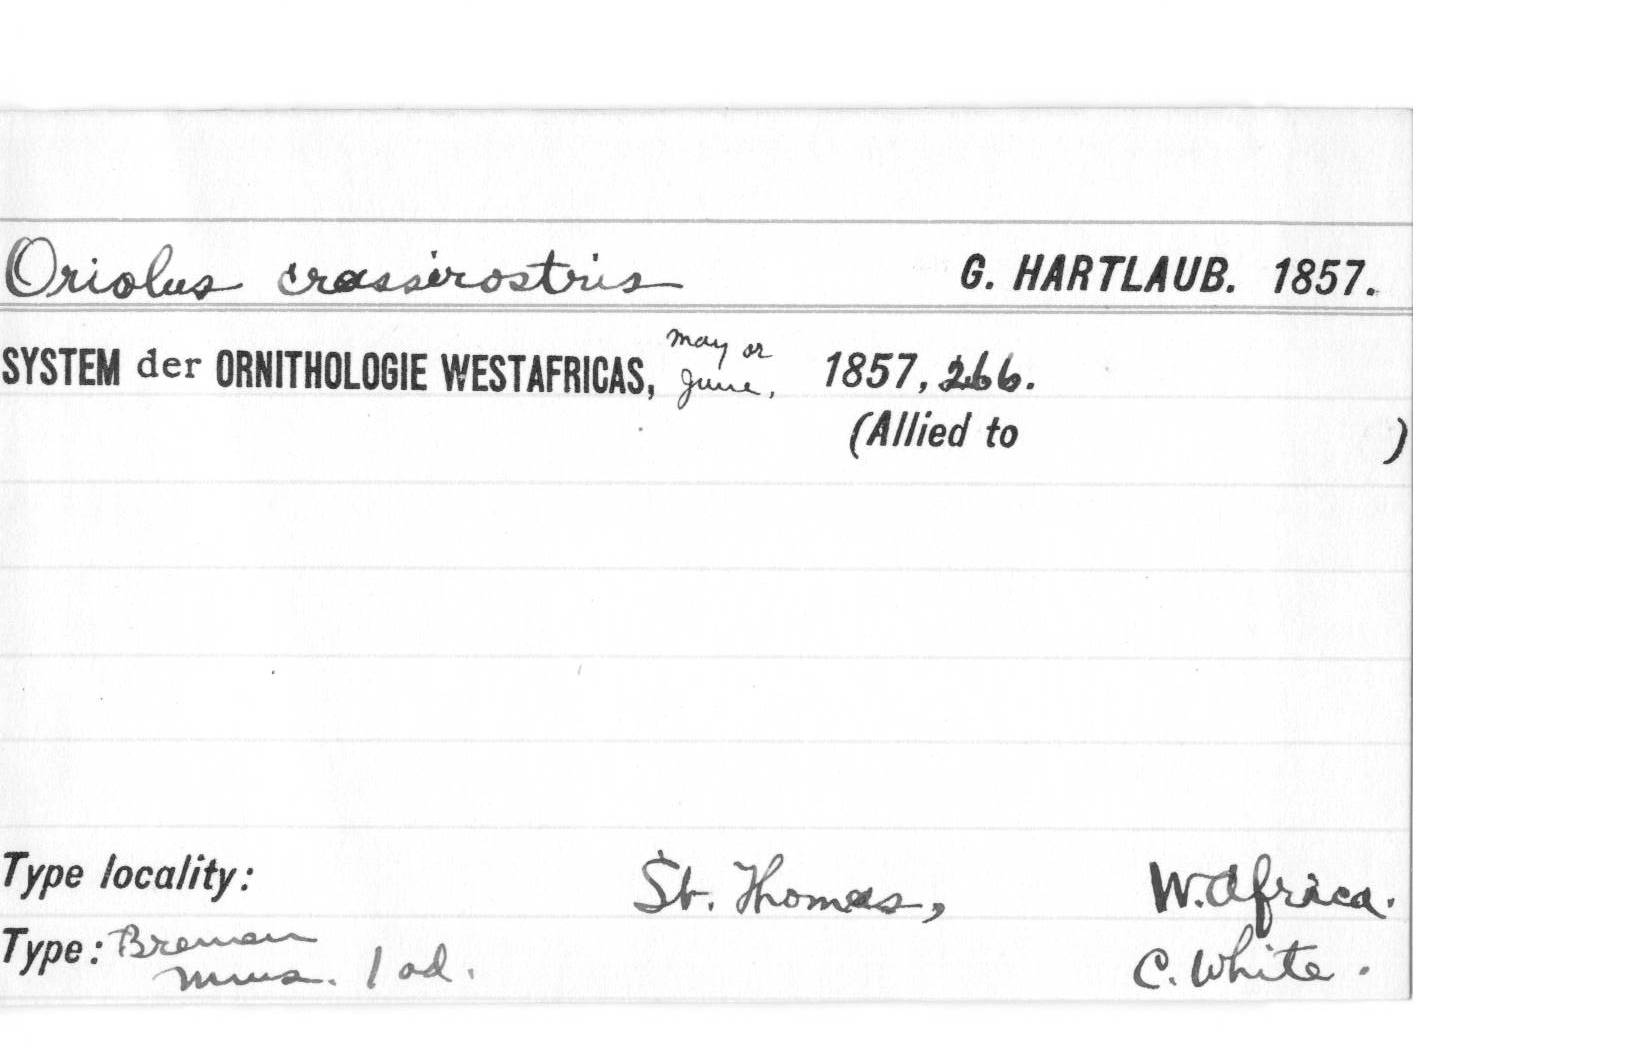 Oriolus crassirostris G. HARTLAUB. 1857.
SYSTEM der ORNITHOLOGIE WESTAFRICAS, May or June, 1857, 266.
(Allied to )
Type locality: St. Thomas, W. Africa.
Type: Bremen Mus. 1 ad. C. White.